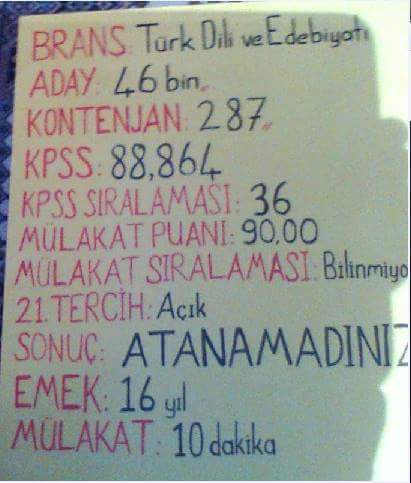 BRANŞ: Türk Dili ve Edebiyatı
ADAY: 46 bin
KONTENJAN: 287
KPSS: 88,864
KPSS SIRALAMASI: 36
MÜLAKAT PUANI: 90,00
MÜLAKAT SIRALAMASI: Bilinmiyo
21. TERCİH: Açık
SONUÇ: ATANAMADINIZ
EMEK: 16 yıl
MÜLAKAT: 10 dakika